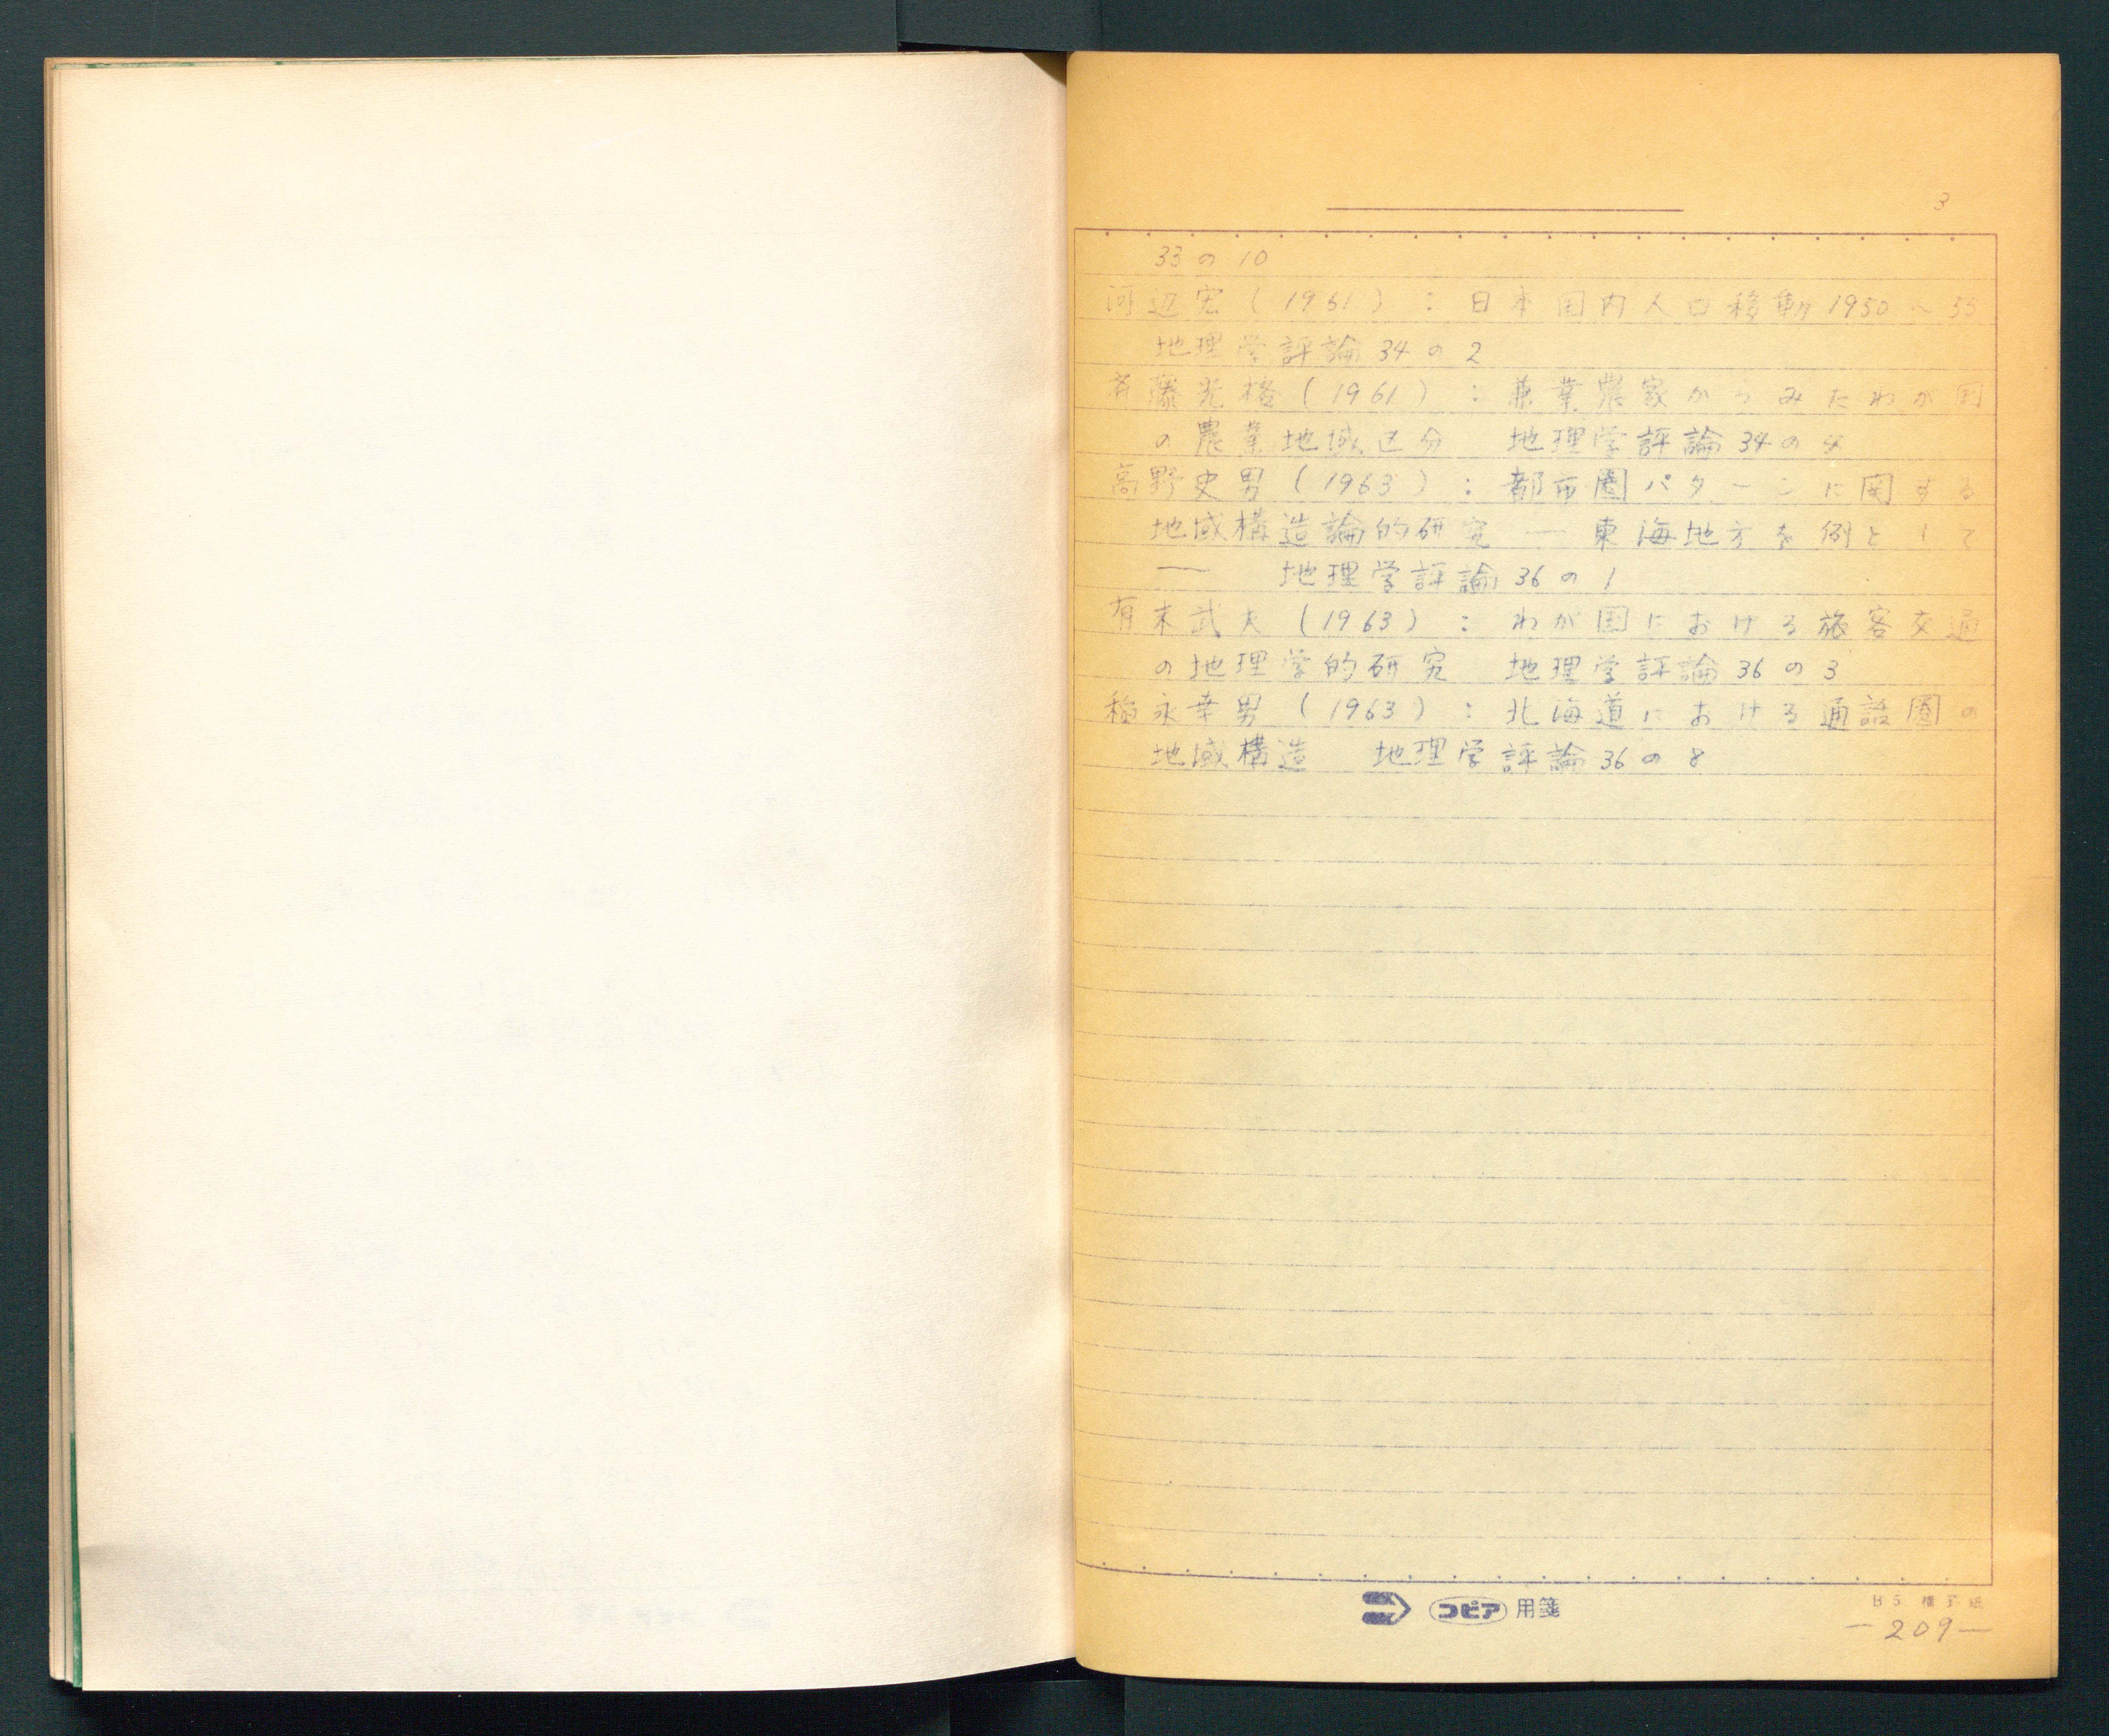 3
33の10
河辺宏(1961):日本国内人口移動1950~55
地理学評論34の2
斉藤光格(1961):兼業農家からみたわが国
の農業地域区分 地理学評論34の4
高野史男(1963):都市圏パターンに関する
地域構造論的研究 ― 東海地方を例として
― 地理学評論36の1
有末武夫(1963):わが国における旅客交通
の地理学的研究 地理学評論36の3
稲永幸男(1963):北海道における通話圏の
地域構造 地理学評論36の8
コピア用箋
B5 横罫紙
―209―